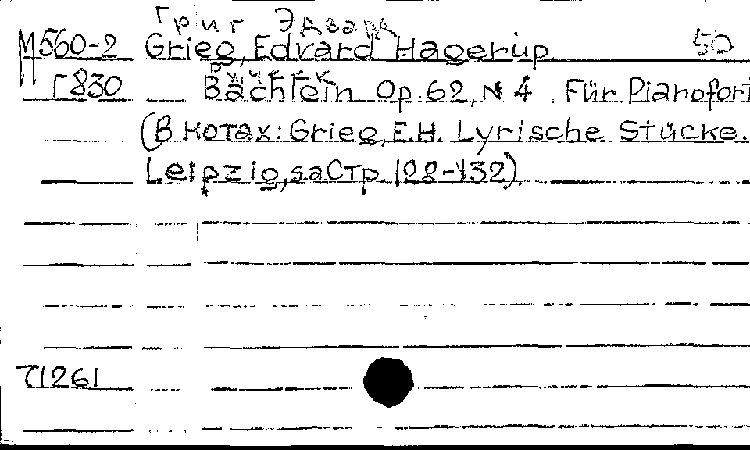 Григ Эдвард
М560-2 Grieg, Edvard Hagerup 50
Г830 Bächlein Op. 62, № 4. Für Pianofort
(В нотах: Grieg, E.H. Lyrische Stücke.
Leipzig, sa Стр 128-132)
71261